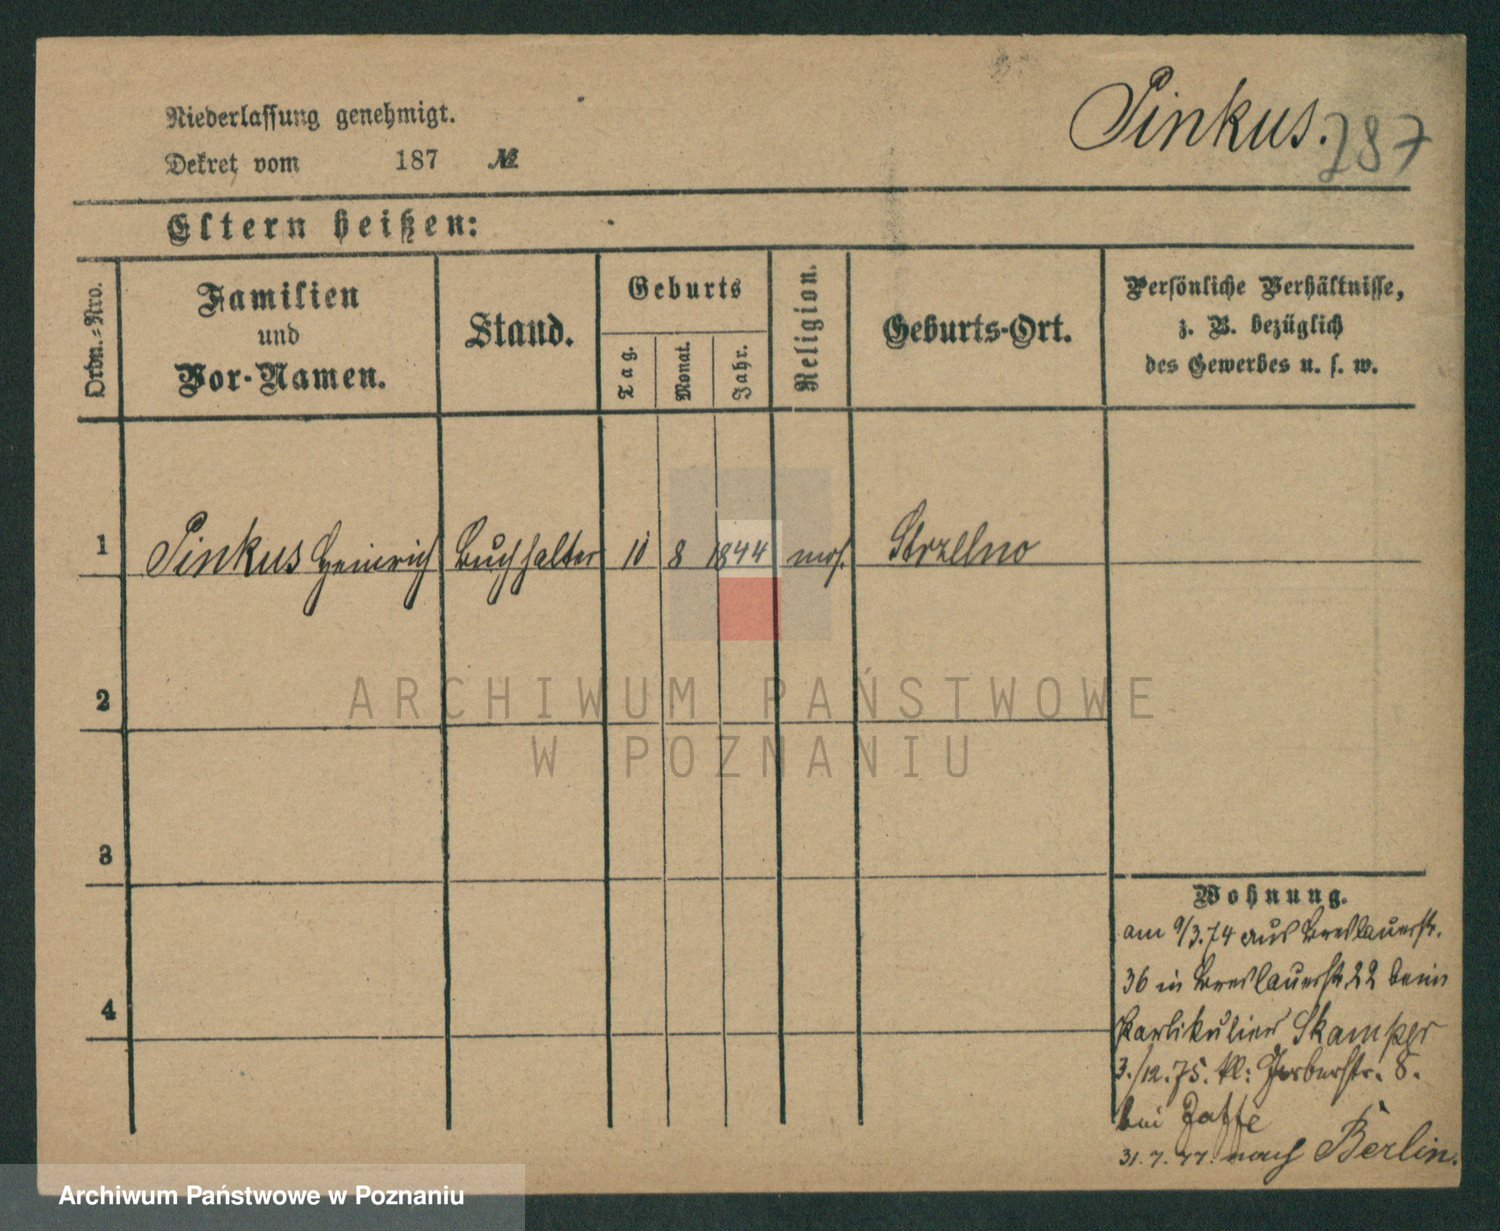 Niederlassung genehmigt.
Pinkus.
287
Dekret vom 187 №
Eltern heißen:
Ordn.-Nro.
Familien
und
Vor-Namen.
Stand.
Geburts
Tag.
Monat.
Jahr.
Religion.
Geburts-Ort.
Persönliche Verhältnisse,
z. B. bezüglich
des Gewerbes u. s. w.
1 Pinkus Heinrich Buchhalter 10 8 1844 mos. Strzelno
2
3
4
Wohnung.
am 9/3.74 aus Breslauerstr.
36 in Breslauerstr. 22 beim
Partikulier Skamper
3./12.75. kl: Gerberstr. 8.
bei Jaffe
31.7.77. nach Berlin.
ARCHIWUM PAŃSTWOWE
W POZNANIU
Archiwum Państwowe w Poznaniu